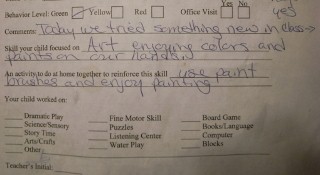 Behavior Level: Green ✓ Yellow Red Office Visit Yes No yes
Comments: Today we tried something new in class→
Skill your child focused on Art enjoying colors and
paints on our hands
An activity to do at home together to reinforce this skill use paint
brushes and enjoy painting
Your child worked on:
Dramatic Play Fine Motor Skill Board Game
Science/Sensory Puzzles Books/Language
Story Time Listening Center Computer
Arts/Crafts Water Play Blocks
Other
Teacher's Initial: